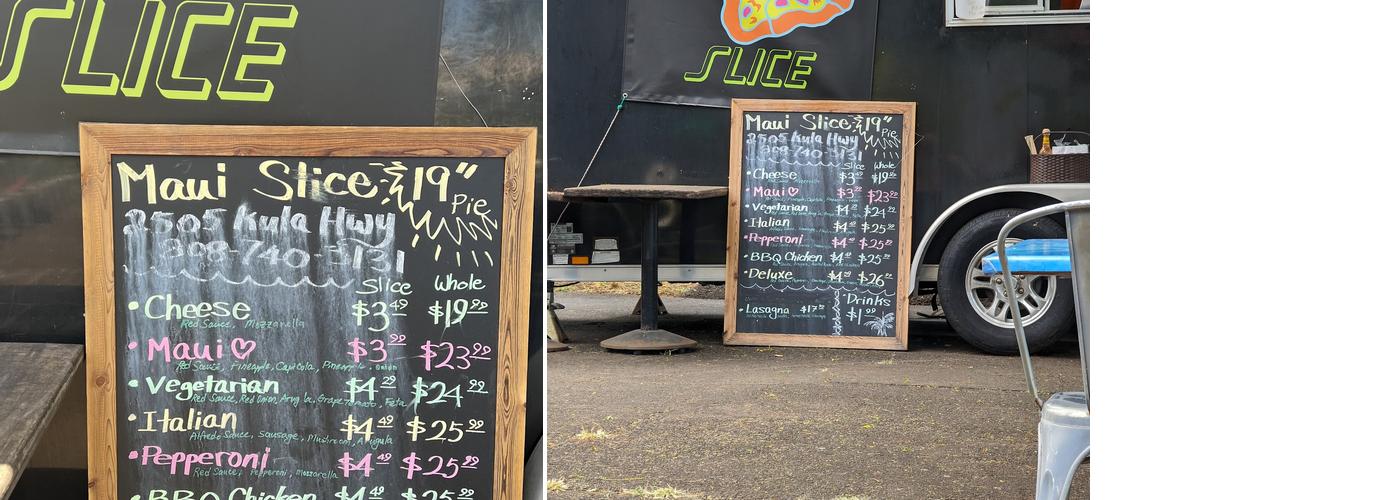 SLICE
Maui Slice 19" Pie
2505 Kula Hwy
808-740-3131
Slice Whole
• Cheese $3.49 $19.99
Red Sauce, Mozzarella
• Maui ♡ $3.99 $23.99
Red Sauce, Pineapple, Capicola,
• Vegetarian $4.29 $24.99
Red Sauce, Red Onion, Arugula, Grape Tomato, Feta
• Italian $4.49 $25.99
Alfredo Sauce, Sausage, Mushroom, Arugula
• Pepperoni $4.49 $25.99
Red Sauce, Pepperoni, Mozzarella
• BBQ Chicken $4.49 $25.99
SLICE
Maui Slice $19" Pie
2505 Kula Hwy
808-740-3131
Slice Whole
• Cheese $3.49 $19.99
• Maui ♡ $3.99 $23.99
• Vegetarian $4.29 $24.99
• Italian $4.49 $25.99
• Pepperoni $4.49 $25.99
• BBQ Chicken $4.49 $25.99
• Deluxe $26.99
Drinks
• Lasagna $17 $1.99